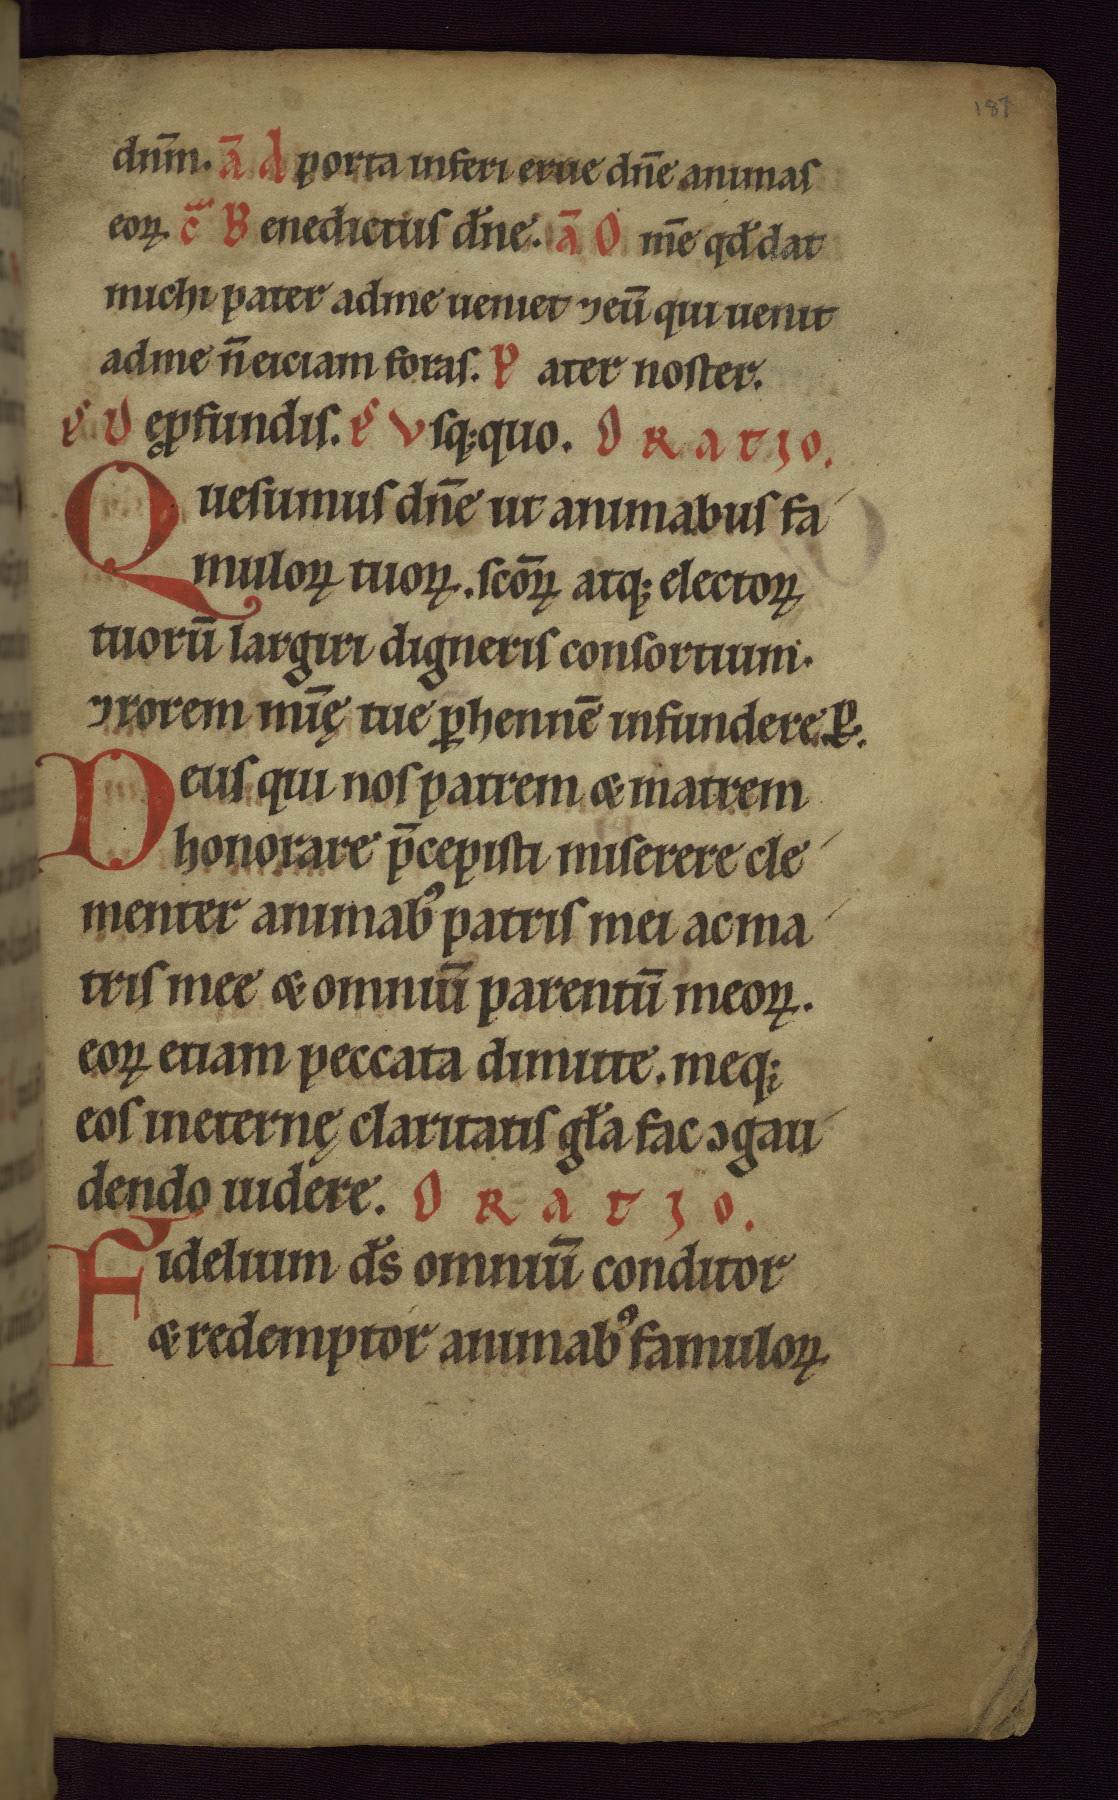 187
dnm̄. ā A porta inferi erue dn̄e animas
eoꝝ. c̄ B enedictus dn̄e. ā O m̄e qđ dat
michi pater adme ueniet ⁊ eū qui uenit
adme n̄ eiciam foras. P ater noster.
p̄s D eꝓfundis. p̄s V sq; quo. O R A T I O.
Quesumus dn̄e ut animabus fa
muloꝝ tuoꝝ. scōꝝ atq; electoꝝ
tuorū largiri digneris consortium.
⁊ rorem mīę tue p̄hennē infundere. P.
Deus qui nos patrem & matrem
honorare p̄cepisti miserere cle
menter animabꝰ patris mei ac ma
tris mee & omniū parentū meoꝝ.
eoꝝ etiam peccata dimitte. meq;
eos in eternę claritatis gl̄a fac ꝯgau
dendo uidere. O R A T I O.
Fidelium d̄s omniū conditor
& redemptor animabꝰ famuloꝝ